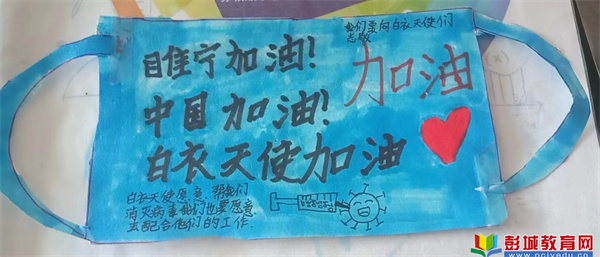 我们要向白衣天使们
致敬
睢宁加油!
加油
中国加油!
白衣天使加油
白衣天使愿意帮我们
消灭病毒我们也要愿意
去配合他们的工作.
彭城教育网
www.pcjyedu.cn